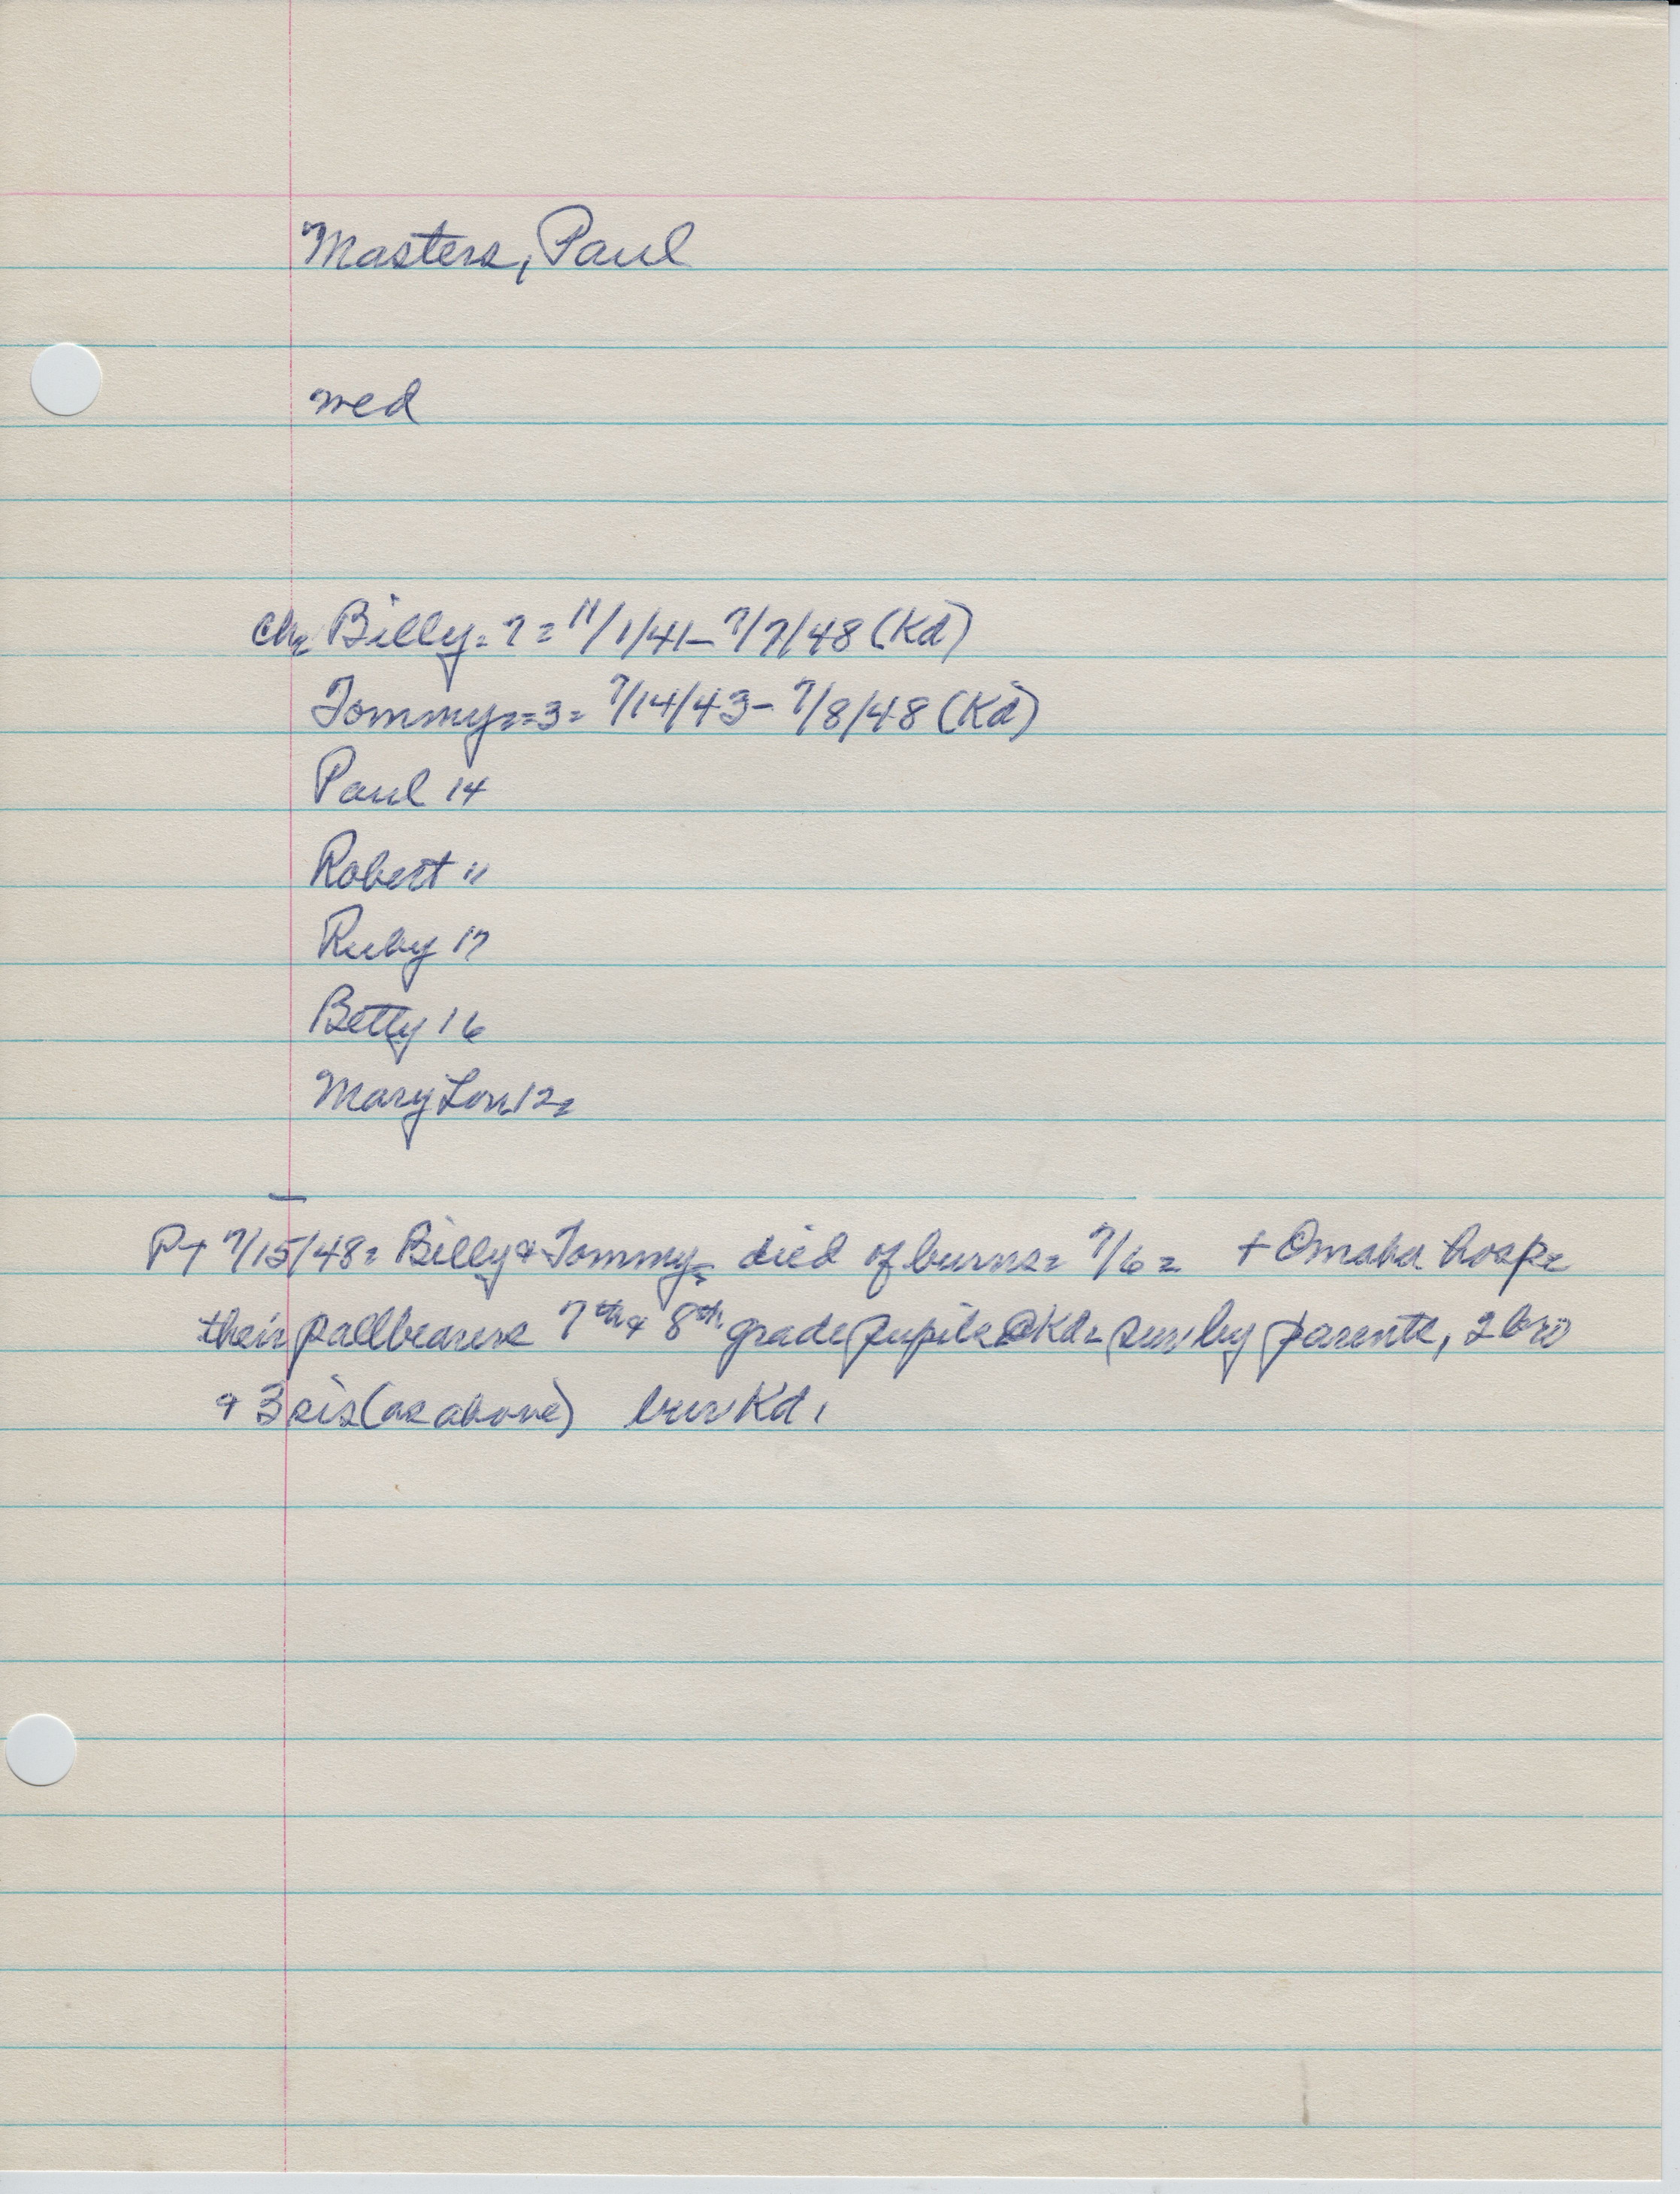 Masters, Paul
med
Ch= Billy= 7= 11/1/41- 7/7/48 (Kd)
Tommy==3= 7/14/43- 7/8/48 (Kd)
Paul 14
Robert 11
Ruby 17
Betty 16
Mary Lou 12=
Pt 7/15/48= Billy & Tommy= died of burns= 7/6= + Omaha hosp=
their pallbearers 7th & 8th grade pupils @ Kd= surv by parents, 2 bro
& 3 sis (as above) bur Kd.